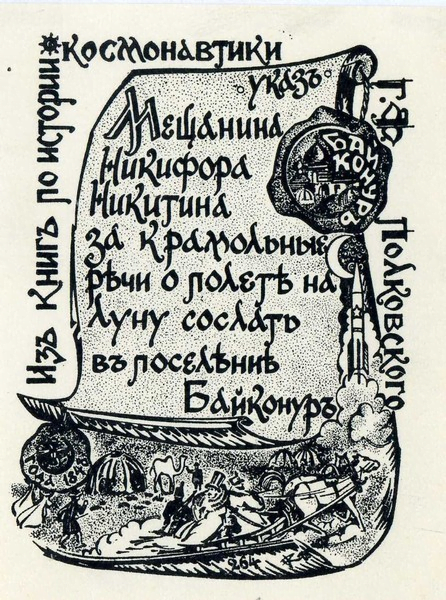 Изъ книгъ по истории
космонавтики
Полковского
указъ
Мещанина
Никифора
Никитина
за крамольные
рѣчи о полетѣ на
Луну сослать
въ поселѣние
Байконуръ
БАЙ
КОНУРЪ
года 1848